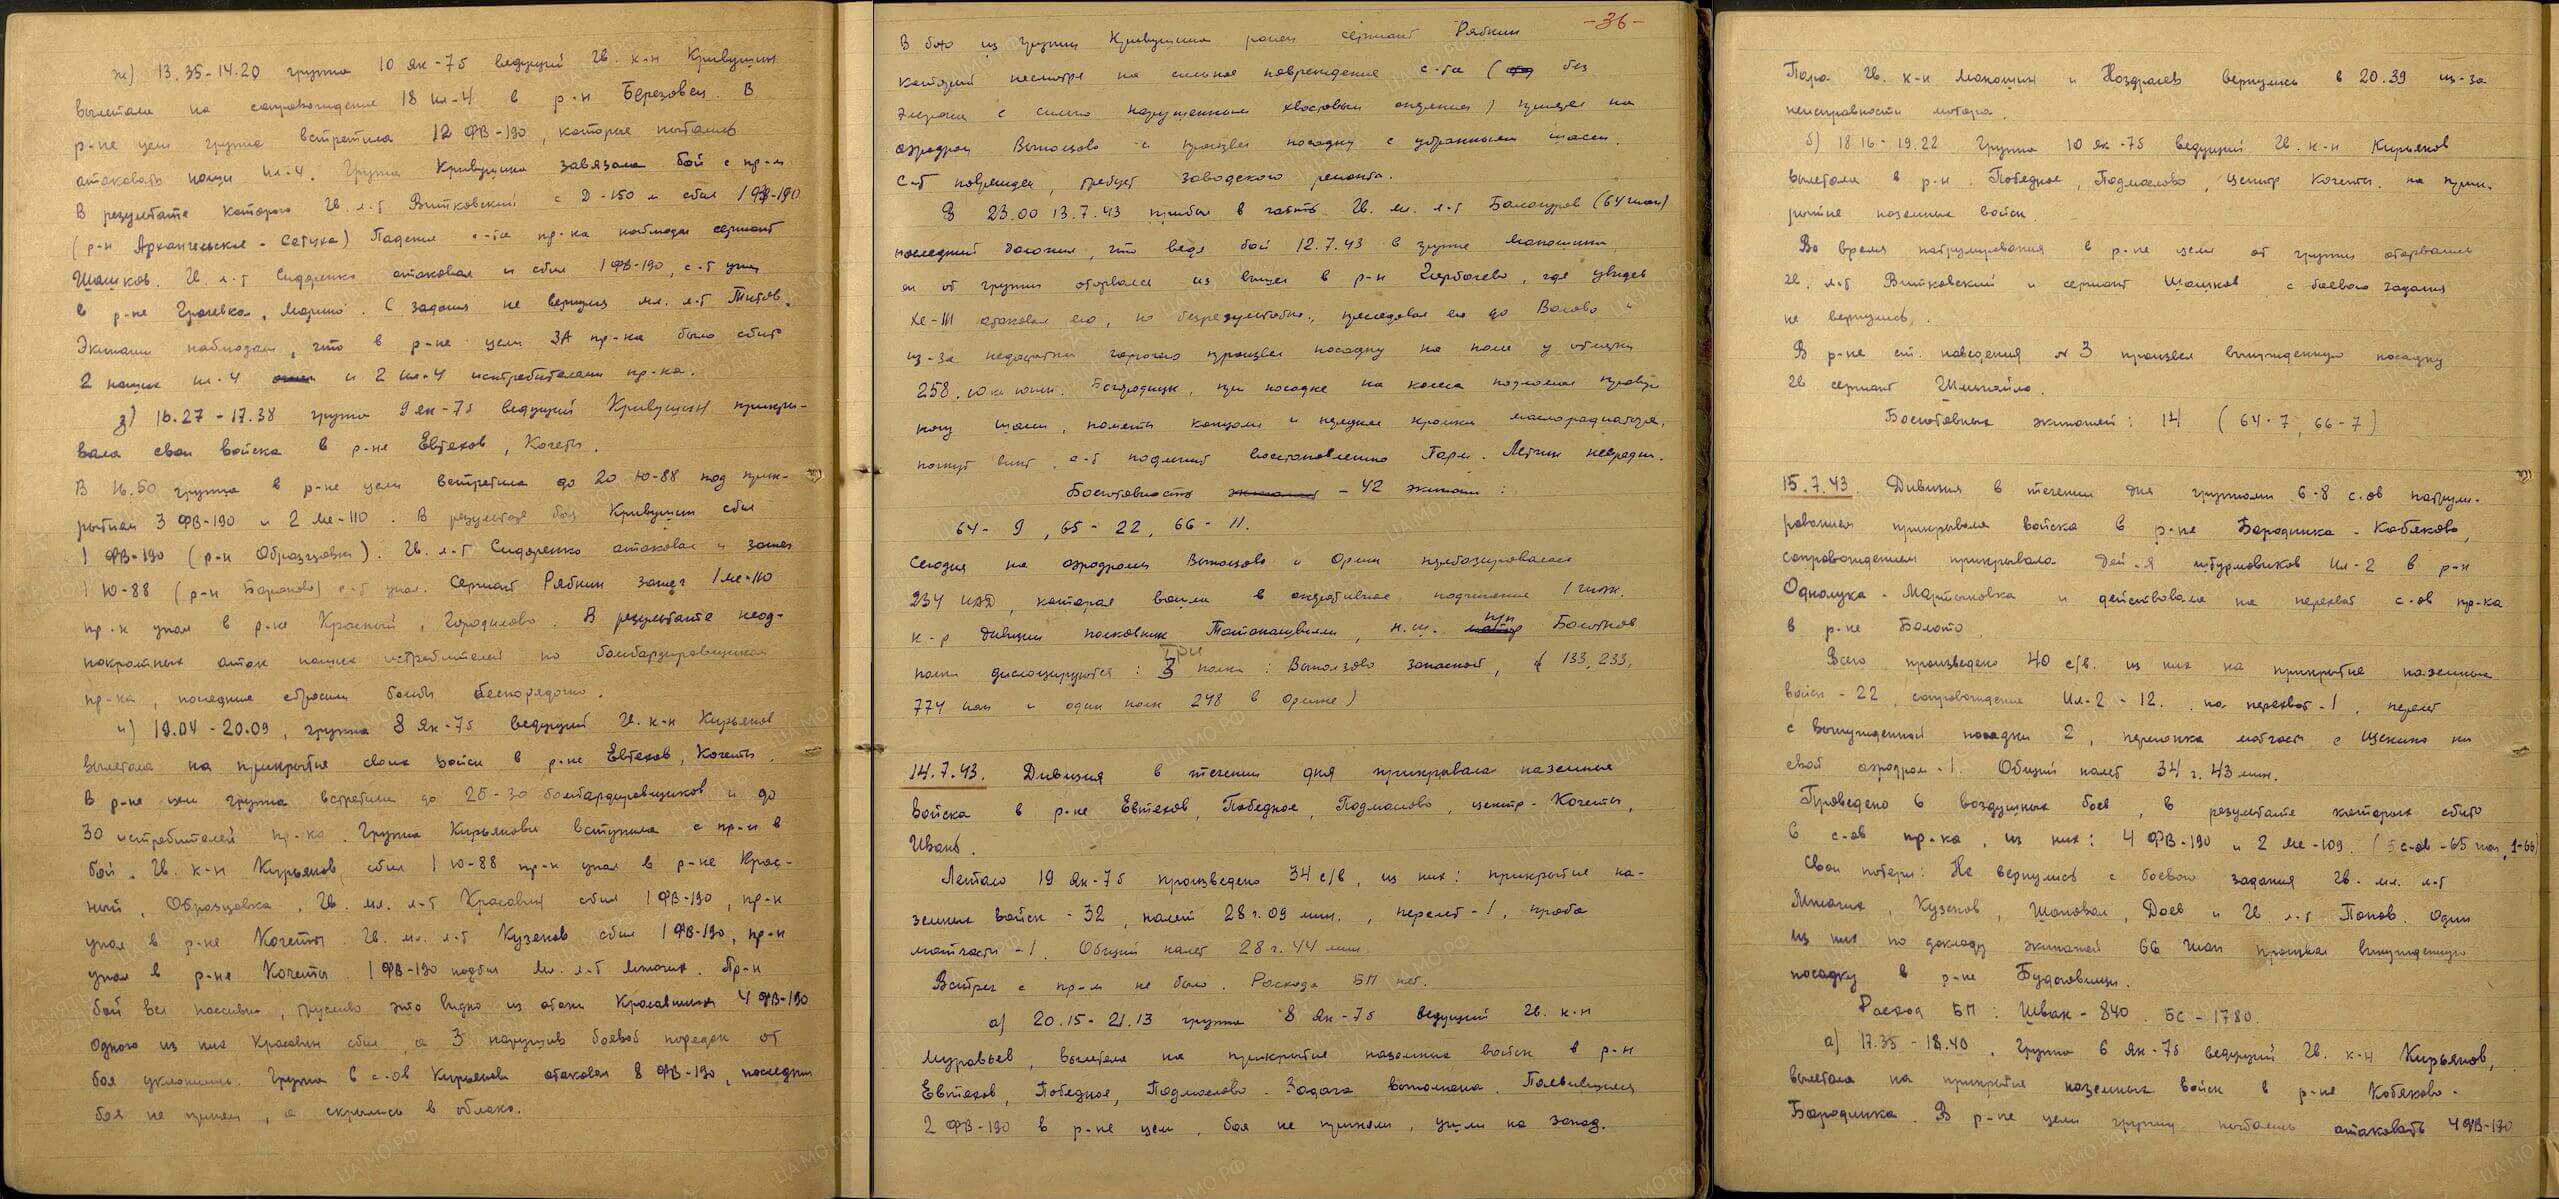 ж) 13.35-14.20 группа 10 Як-7б ведущий Гв. к-н Кривушин
вылетала на сопровождение 18 Ил-4 в р-н Березовец. В
р-не цели группа встретила 12 ФВ-190, которые пытались
атаковать наши Ил-4. Группа Кривушина завязала бой с пр-м
В результате которого Гв. л-т Витковский с Д-150 м сбил 1 ФВ-190
(р-н Архангельское - Сетуха) Падение с-та пр-ка наблюдал сержант
Шашков. Гв. л-т Сидоренко атаковал и сбил 1 ФВ-190, с-т упал
в р-не Грачевка, Марьино. С задания не вернулся мл. л-т Титов.
Экипажи наблюдали, что в р-не цели ЗА пр-ка было сбито
2 наших Ил-4 и 2 Ил-4 истребителями пр-ка.
з) 16.27-17.38 группа 9 Як-7б ведущий Кривушин прикры-
вала свои войска в р-не Евтехов, Кочеты.
В 16.50 группа в р-не цели встретила до 20 Ю-88 под прик-
рытием 3 ФВ-190 и 2 Ме-110. В результате боя Кривушин сбил
1 ФВ-190 (р-н Образцовка). Гв. л-т Сидоренко атаковал и зажег
1 Ю-88 (р-н Бараново) с-т упал. Сержант Рябкин зажег 1 Ме-110
пр-к упал в р-не Красный, Городилово. В результате неод-
нократных атак наших истребителей по бомбардировщикам
пр-ка, последние сбросили бомбы беспорядочно.
и) 19.04-20.09, группа 8 Як-7б ведущий Гв. к-н Кирьянов
вылетала на прикрытие своих войск в р-не Евтехов, Кочеты.
В р-не цели группа встретили до 25-30 бомбардировщиков и до
30 истребителей пр-ка. Группа Кирьянова вступила с пр-м в
бой. Гв. к-н Кирьянов сбил 1 Ю-88 пр-к упал в р-не Крас-
ный, Образцовка. Гв. мл. л-т Красавин сбил 1 ФВ-190, пр-к
упал в р-не Кочеты. Гв. мл. л-т Кузенов сбил 1 ФВ-190, пр-к
упал в р-не Кочеты. 1 ФВ-190 подбил мл. л-т Мжачих. Пр-к
бой вел пассивно, трусливо это видно из атаки Красавиным 4 ФВ-190
Одного из них Красавин сбил, а 3 нарушив боевой порядок от
боя уклонились. Группа 6 с-ов Кирьянова атаковал 8 ФВ-190, последние
боя не приняли, а скрылись в облако.
-36-
В бою из группы Кривушина ранен сержант Рябкин
который несмотря на сильное повреждение с-та ( без
элерона с сильно нарушенным хвостовым оперением) пришел на
аэродром Выползово и произвел посадку с убранными шасси.
С-т поврежден, требует заводского ремонта.
В 23.00 13.7.43 прибыл в часть Гв. мл. л-т Балашуров (64 гиап)
последний доложил, что ведя бой 12.7.43 в группе Маношина
он от группы оторвался из вышел в р-н Горбачево, где увидев
Хе-111 атаковал его, но безрезультатно, преследовал его до Волово и
из-за недостатки горючего произвел посадку на поле у отметки
258.10 км южн. Богородицк, при посадке на колеса подломал правую
ногу шасси, помяты консоли и передняя кромка маслорадиатора,
погнут винт, с-т подлежит восстановлению Парм. Летчик невредим.
Боеготовность - 42 экипажи:
64 - 9, 65 - 22, 66 - 11.
Сегодня на аэродромы Выползово и Орсии перебазировалась
234 ИАД, которая вошли в оперативное подчинение 1 гиак.
к-р дивизии полковник Татанашвили, н.ш. п/п Болотнов
полки дислоцируются: Три полка: Выползово запасной, ( 133, 233,
774 иап и один полк 248 в Орсине)
14.7.43. Дивизия в течении дня прикрывала наземные
войска в р-не Евтехов, Победное, Подмаслово, центр - Кочеты,
Ивань.
Летало 19 Як-7б произведено 34 с/в, из них: прикрытие на-
земных войск - 32, налет 28 ч. 09 мин., перелет - 1, проба
матчасти - 1. Общий налет 28 ч. 44 мин.
Встреч с пр-м не было. Расхода БП нет.
а) 20.15-21.13 группа 8 Як-7б ведущий Гв. к-н
Муравьев, вылетала на прикрытие наземных войск в р-н
Евтехов, Победное, Подмаслово. Задача выполнена. Появившиеся
2 ФВ-190 в р-не цели, боя не приняли, ушли на запад.
Пара Гв. к-н Маношин и Ноздрачев вернулись в 20.39 из-за
неисправности мотора.
б) 18.16-19.22 Группа 10 Як-7б ведущий Гв. к-н Кирьянов
вылетала в р-н: Победное, Подмаслово, центр Кочеты, на прик-
рытие наземных войск.
Во время патрулирования в р-не цели от группы оторвались
Гв. л-т Витковский и сержант Шашков, с боевого задания
не вернулись.
В р-не ст. наведения №3 произвел вынужденную посадку
Гв сержант Шмыгайло.
Боеготовных экипажей: 14 (64-7, 66-7)
15.7.43. Дивизия в течении дня группами 6-8 с.ов патрули-
рованием прикрывала войска в р-не Бородинка - Кобяково,
сопровождением прикрывала дей-я штурмовиков Ил-2 в р-н
Однолука - Мартыновка и действовала на перехват с-ов пр-ка
в р-не Болото.
Всего произведено 40 с/в. из них на прикрытие наземных
войск - 22, сопровождение Ил-2 - 12, на перехват - 1, перелет
с вынужденной посадки 2, перегонка матчасть с Щекино на
свой аэродром - 1. Общий налет 34 ч. 43 мин.
Проведено 6 воздушных боев, в результате которых сбито
6 с-ов пр-ка, из них: 4 ФВ-190 и 2 Ме-109. (5 с-ов - 65 иап, 1-66)
Свои потери: Не вернулись с боевого задания Гв. мл. л-т
Мжачих, Кузенов, Шаповал, Доев и Гв. л-т Попов. Один
из них по докладу экипажей 66 гиап произвел вынужденную
посадку в р-не Будоговищи.
Расход БП: Швак - 840. БС - 1780.
а) 17.35-18.40. Группа 6 Як-7б ведущий Гв. к-н Кирьянов,
вылетала на прикрытие наземных войск в р-не Кобяково-
Бородинка. В р-не цели группу пытались атаковать 4 ФВ-190